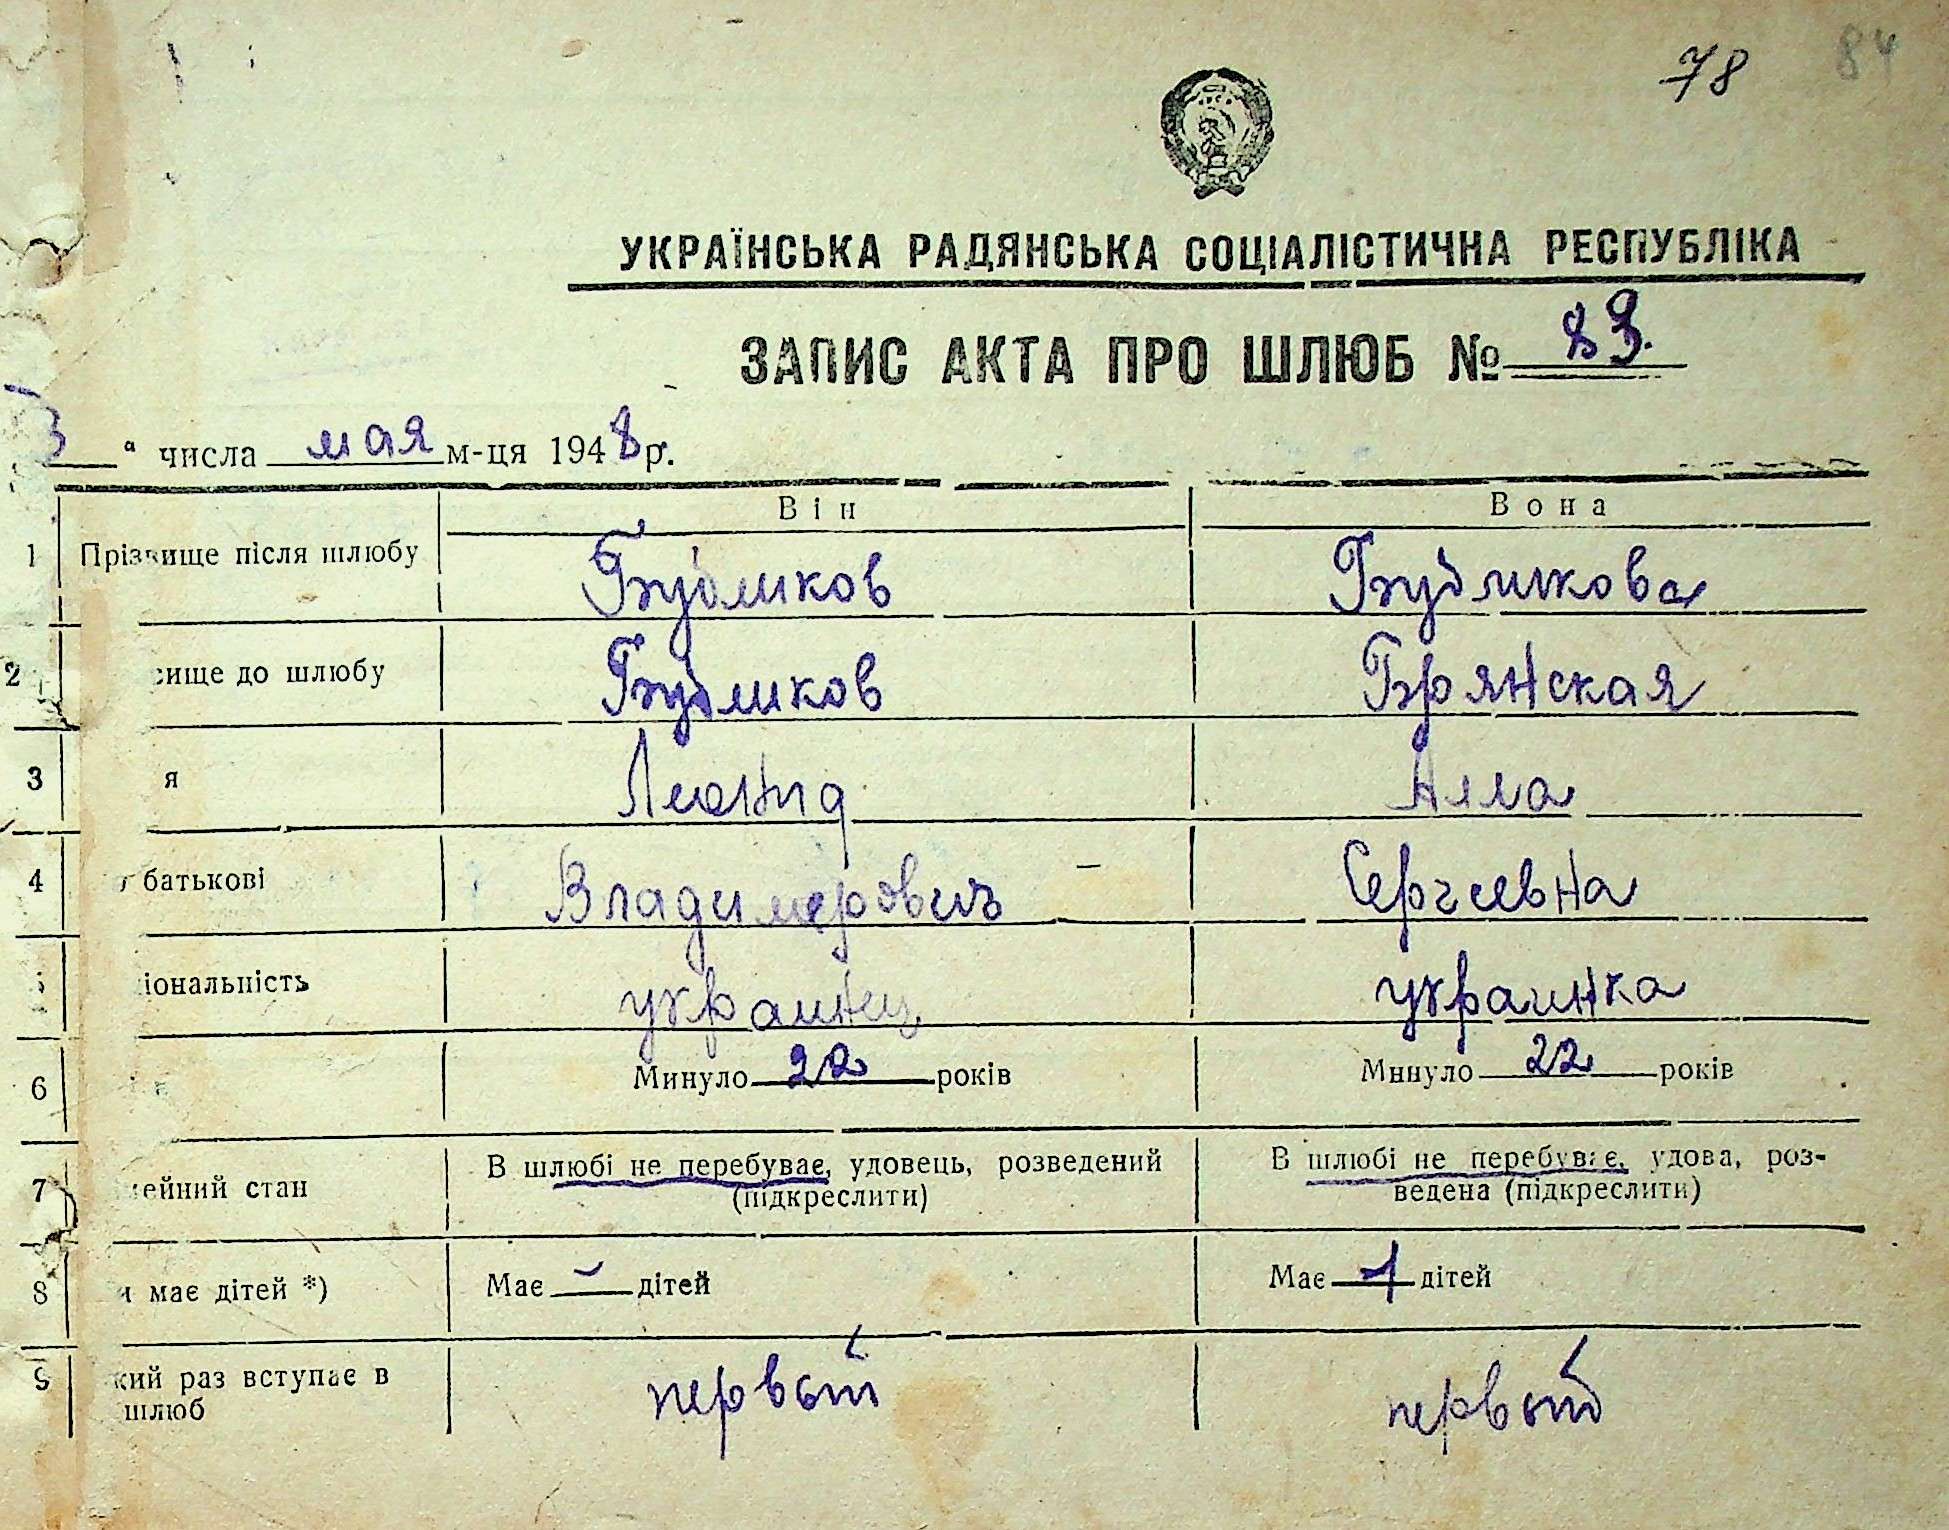 78 84
УКРАЇНСЬКА РАДЯНСЬКА СОЦІАЛІСТИЧНА РЕСПУБЛІКА
ЗАПИС АКТА ПРО ШЛЮБ № 83.
3 " числа мая м-ця 1948 р.
Він Вона
1 Прізвище після шлюбу Бубликов Бубликова
2 вище до шлюбу Бубликов Брянская
3 я Леонид Алла
4 батькові Владимирович Сергеевна
5 іональність украинец украинка
6 Минуло 22 років Минуло 22 років
7 мейний стан В шлюбі не перебуває, удовець, розведений В шлюбі не перебуває, удова, роз-
(підкреслити) ведена (підкреслити)
8 и має дітей *) Має – дітей Має 1 дітей
9 кий раз вступає в первый первый
шлюб